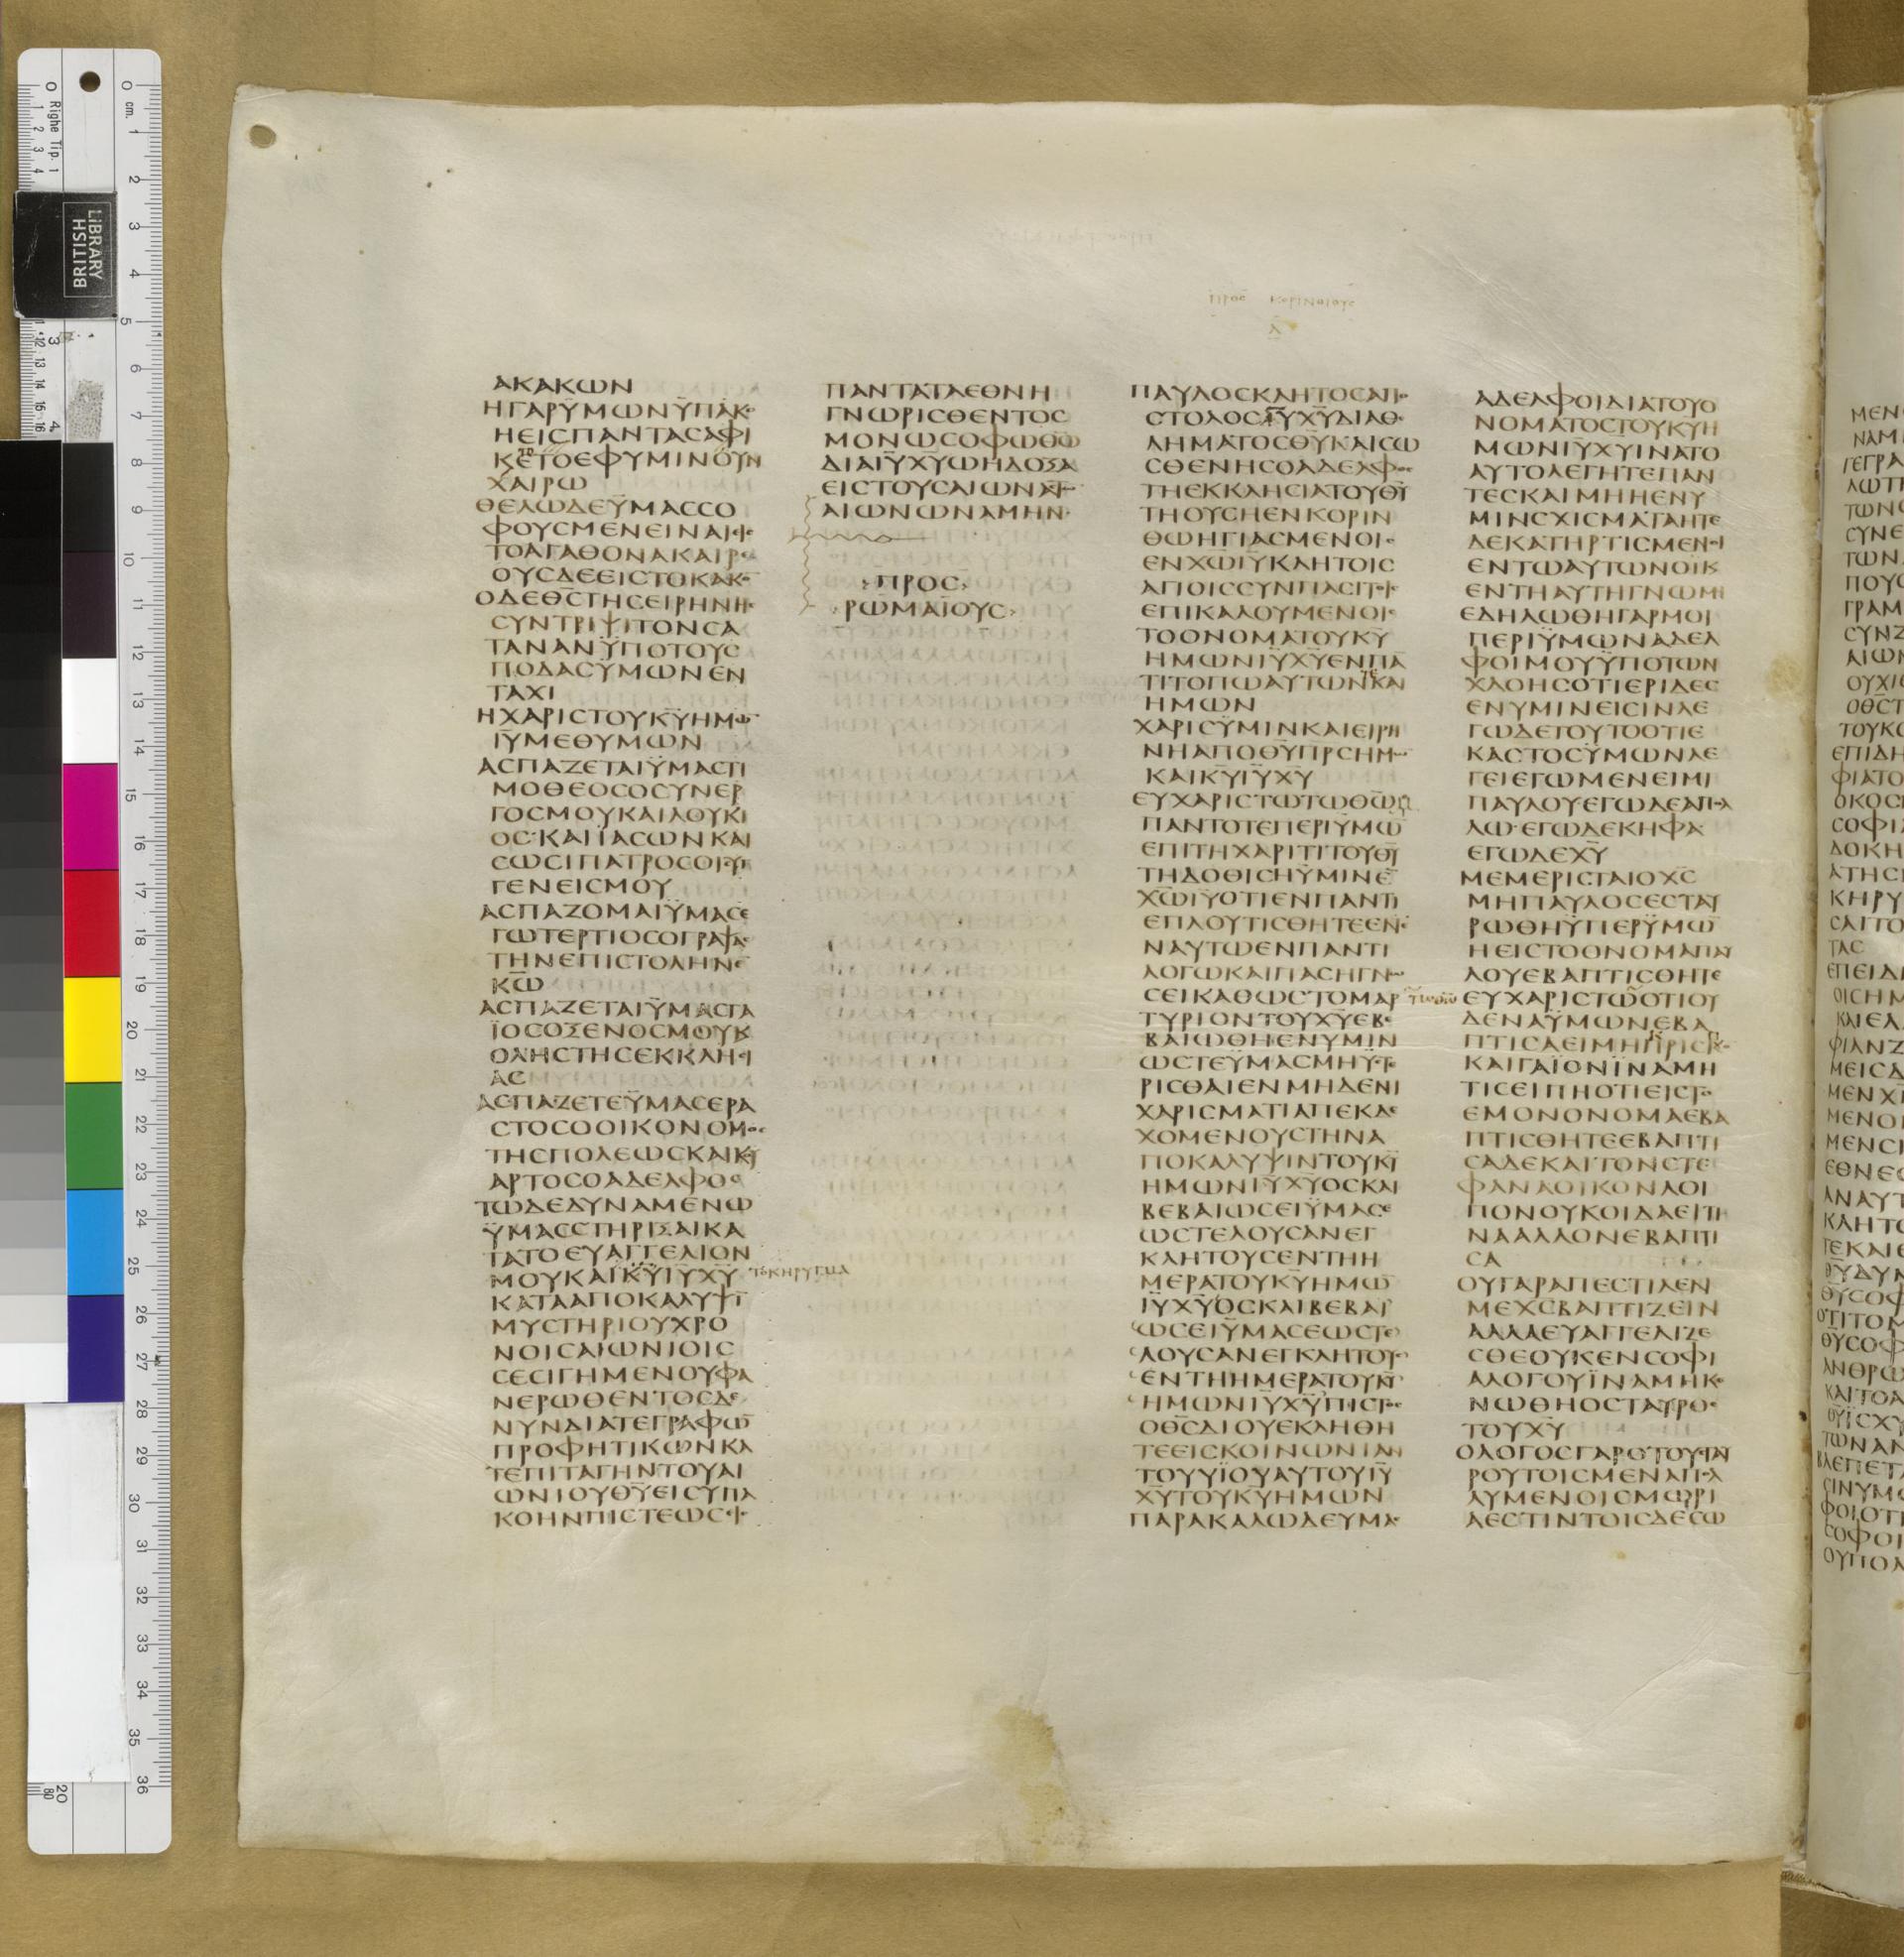 Προс κορινθιουс
Α
ΑΚΑΚΩΝ
ΗΓΑΡΫΜΩΝΫΠΑΚΟ
ΗΕΙСΠΑΝΤΑСΑΦΙ
ΚΕΤΟΕΦΥΜΙΝΟΥΝ
ΧΑΙΡΩ
ΘΕΛΩΔΕΫΜΑССΟ
ΦΟΥСΜΕΝΕΙΝΑΙΕΙ
ΤΟΑΓΑΘΟΝΑΚΑΙΡΑΙ
ΟΥСΔΕΕΙСΤΟΚΑΚΟ
ΟΔΕΘ̅С̅ΤΗСΕΙΡΗΝΗС
СΥΝΤΡΙΨΙΤΟΝСΑ
ΤΑΝΑΝΫΠΟΤΟΥС
ΠΟΔΑСΫΜΩΝΕΝ
ΤΑΧΙ
ΗΧΑΡΙСΤΟΥΚ̅Υ̅ΗΜΩ̅
Ι̅Υ̅ΜΕΘΥΜΩΝ
ΑСΠΑΖΕΤΑΙΫΜΑСΤΙ
ΜΟΘΕΟСΟСΥΝΕΡ
ΓΟСΜΟΥΚΑΙΛΟΥΚΙ
ΟС·ΚΑΙΪΑСΩΝΚΑΙ
СΩСΙΠΑΤΡΟСΟΙСΥΓ
ΓΕΝΕΙСΜΟΥ
ΑСΠΑΖΟΜΑΙΫΜΑСΕ
ΓΩΤΕΡΤΙΟСΟΓΡΑΨΑС
ΤΗΝΕΠΙСΤΟΛΗΝΕ̅
Κ̅Ω̅
ΑСΠΑΖΕΤΑΙΫΜΑСΓΑ
ΪΟСΟΞΕΝΟСΜΟΥΚ
ΟΛΗСΤΗСΕΚΚΛΗСΙ
ΑС
ΑСΠΑΖΕΤΕΫΜΑСΕΡΑ
СΤΟСΟΟΙΚΟΝΟΜΟС
ΤΗСΠΟΛΕΩСΚΑΙΚΟΥ
ΑΡΤΟСΟΑΔΕΛΦΟС
ΤΩΔΕΔΥΝΑΜΕΝΩ
ΫΜΑССΤΗΡΙΞΑΙΚΑ
ΤΑΤΟΕΥΑΓΓΕΛΙΟΝ
ΜΟΥΚΑΙΚ̅Υ̅Ι̅Υ̅Χ̅Υ̅ ΤΟΚΗΡΥΓΜΑ
ΚΑΤΑΑΠΟΚΑΛΥΨΙ̅
ΜΥСΤΗΡΙΟΥΧΡΟ
ΝΟΙСΑΙΩΝΙΟΙС
СΕСΙΓΗΜΕΝΟΥΦΑ
ΝΕΡΩΘΕΝΤΟСΔΕ
ΝΥΝΔΙΑΤΕΓΡΑΦΩ̅
ΠΡΟΦΗΤΙΚΩΝΚΑ
ΤΕΠΙΤΑΓΗΝΤΟΥΑΙ
ΩΝΙΟΥΘ̅Υ̅ΕΙСΥΠΑ
ΚΟΗΝΠΙСΤΕΩСΕΙС
ΠΑΝΤΑΤΑΕΘΝΗ
ΓΝΩΡΙСΘΕΝΤΟС
ΜΟΝΩСΟΦΩΘ̅Ω̅
ΔΙΑΙ̅Υ̅Χ̅Υ̅ΩΗΔΟΞΑ
ΕΙСΤΟΥСΑΙΩΝΑС
ΑΙΩΝΩΝΑΜΗΝ·
ΠΡΟС
ΡΩΜΑΙΟΥС
ΠΑΥΛΟСΚΛΗΤΟСΑΠΟ
СΤΟΛΟСΙ̅Υ̅Χ̅Υ̅ΔΙΑΘΕ
ΛΗΜΑΤΟСΘ̅Υ̅ΚΑΙСΩ
СΘΕΝΗСΟΑΔΕΛΦΟС
ΤΗΕΚΚΛΗСΙΑΤΟΥΘ̅Υ̅
ΤΗΟΥСΗΕΝΚΟΡΙΝ
ΘΩΗΓΙΑСΜΕΝΟΙС
ΕΝΧ̅Ω̅Ι̅Υ̅ΚΛΗΤΟΙС
ΑΓΙΟΙССΥΝΠΑСΙΤΟΙС
ΕΠΙΚΑΛΟΥΜΕΝΟΙС
ΤΟΟΝΟΜΑΤΟΥΚ̅Υ̅
ΗΜΩΝΙ̅Υ̅Χ̅Υ̅ΕΝΠΑ̅
ΤΙΤΟΠΩΑΥΤΩΝΚΑΙ
ΗΜΩΝ
ΧΑΡΙСΫΜΙΝΚΑΙΕΙΡΗ
ΝΗΑΠΟΘ̅Υ̅Π̅Ρ̅С̅ΗΜΩ̅
ΚΑΙΚ̅Υ̅Ι̅Υ̅Χ̅Υ̅
ΕΥΧΑΡΙСΤΩΤΩΘ̅Ω̅
ΠΑΝΤΟΤΕΠΕΡΙΫΜΩ̅
ΕΠΙΤΗΧΑΡΙΤΙΤΟΥΘ̅Υ̅
ΤΗΔΟΘΙСΗΫΜΙΝΕ̅
Χ̅Ω̅Ι̅Υ̅ΟΤΙΕΝΠΑΝΤΙ
ΕΠΛΟΥΤΙСΘΗΤΕΕΝ
ΝΑΥΤΩΕΝΠΑΝΤΙ
ΛΟΓΩΚΑΙΠΑСΗΓΝΩ
СΕΙΚΑΘΩСΤΟΜΑΡ
ΤΥΡΙΟΝΤΟΥΧ̅Υ̅ΕΒΕ
ΒΑΙΩΘΗΕΝΥΜΙΝ
ΩСΤΕΫΜΑСΜΗΫСΤΕ
ΡΙСΘΑΙΕΝΜΗΔΕΝΙ
ΧΑΡΙСΜΑΤΙΑΠΕΚΔΕ
ΧΟΜΕΝΟΥСΤΗΝΑ
ΠΟΚΑΛΥΨΙΝΤΟΥΚ̅Υ̅
ΗΜΩΝΙ̅Υ̅Χ̅Υ̅ΟСΚΑΙ
ΒΕΒΑΙΩСΕΙΫΜΑСΕ
ΩСΤΕΛΟΥСΑΝΕΓ
ΚΛΗΤΟΥСΕΝΤΗΗ
ΜΕΡΑΤΟΥΚ̅Υ̅ΗΜΩ̅
Ι̅Υ̅Χ̅Υ̅ΟСΚΑΙΒΕΒΑΙ
ΩСΕΙΫΜΑСΕΩСΤΕ
ΛΟΥСΑΝΕΓΚΛΗΤΟΥС
ΕΝΤΗΗΜΕΡΑΤΟΥΚ̅Υ̅
ΗΜΩΝΙ̅Υ̅Χ̅Υ̅ΠΙСΤΟС
ΟΘ̅С̅ΔΙΟΥΕΚΛΗΘΗ
ΤΕΕΙСΚΟΙΝΩΝΙΑΝ
ΤΟΥΥΪΟΥΑΥΤΟΥΙ̅Υ̅
Χ̅Υ̅ΤΟΥΚ̅Υ̅ΗΜΩΝ
ΠΑΡΑΚΑΛΩΔΕΥΜΑС
ΑΔΕΛΦΟΙΔΙΑΤΟΥΟ
ΝΟΜΑΤΟСΤΟΥΚ̅Υ̅Η
ΜΩΝΙ̅Υ̅Χ̅Υ̅ΙΝΑΤΟ
ΑΥΤΟΛΕΓΗΤΕΠΑΝ
ΤΕСΚΑΙΜΗΗΕΝΥ
ΜΙΝСΧΙСΜΑΤΑΗΤΕ
ΔΕΚΑΤΗΡΤΙСΜΕΝΟΙ
ΕΝΤΩΑΥΤΩΝΟΙΚ
ΕΝΤΗΑΥΤΗΓΝΩΜΗ
ΕΔΗΛΩΘΗΓΑΡΜΟΙ
ΠΕΡΙΫΜΩΝΑΔΕΛ
ΦΟΙΜΟΥΫΠΟΤΩΝ
ΧΛΟΗСΟΤΙΕΡΙΔΕС
ΕΝΥΜΙΝΕΙСΙΝΛΕ
ΓΩΔΕΤΟΥΤΟΟΤΙΕ
ΚΑСΤΟСΫΜΩΝΛΕ
ΓΕΙΕΓΩΜΕΝΕΙΜΙ
ΠΑΥΛΟΥΕΓΩΔΕΑΠΟΛ
ΛΩ·ΕΓΩΔΕΚΗΦΑ
ΕΓΩΔΕΧ̅Υ̅
ΜΕΜΕΡΙСΤΑΙΟΧ̅С̅
ΜΗΠΑΥΛΟСΕСΤΑΥ
ΡΩΘΗΫΠΕΡΫΜΩ̅
ΗΕΙСΤΟΟΝΟΜΑΠΑΥ
ΛΟΥΕΒΑΠΤΙСΘΗΤΕ
ΕΥΧΑΡΙСΤΩΟΤΙΟΥ
ΔΕΝΑΫΜΩΝΕΒΑ
ΠΤΙСΑΕΙΜΗΠΡΙСΚΟ
ΚΑΙΓΑΪΟΝΪΝΑΜΗ
ΤΙСΕΙΠΗΟΤΙΕΙСΤΟ
ΕΜΟΝΟΝΟΜΑΕΒΑ
ΠΤΙСΘΗΤΕΕΒΑΠΤΙ
СΑΔΕΚΑΙΤΟΝСΤΕ
ΦΑΝΑΟΙΚΟΝΛΟΙ
ΠΟΝΟΥΚΟΙΔΑΕΙΤΙ
ΝΑΑΛΛΟΝΕΒΑΠΤΙ
СΑ
ΟΥΓΑΡΑΠΕСΤΙΛΕΝ
ΜΕΧ̅С̅ΒΑΠΤΙΖΕΙΝ
ΑΛΛΑΕΥΑΓΓΕΛΙΖΕ
СΘΕΟΥΚΕΝСΟΦΙ
ΑΛΟΓΟΥΪΝΑΜΗΚΕ
ΝΩΘΗΟСΤΑΥΡΟС
ΤΟΥΧ̅Υ̅
ΟΛΟΓΟСΓΑΡΟΤΟΥСΤΑΥ
ΡΟΥΤΟΙСΜΕΝΑΠΟΛ
ΛΥΜΕΝΟΙСΜΩΡΙ
ΑΕСΤΙΝΤΟΙСΔΕСΩ